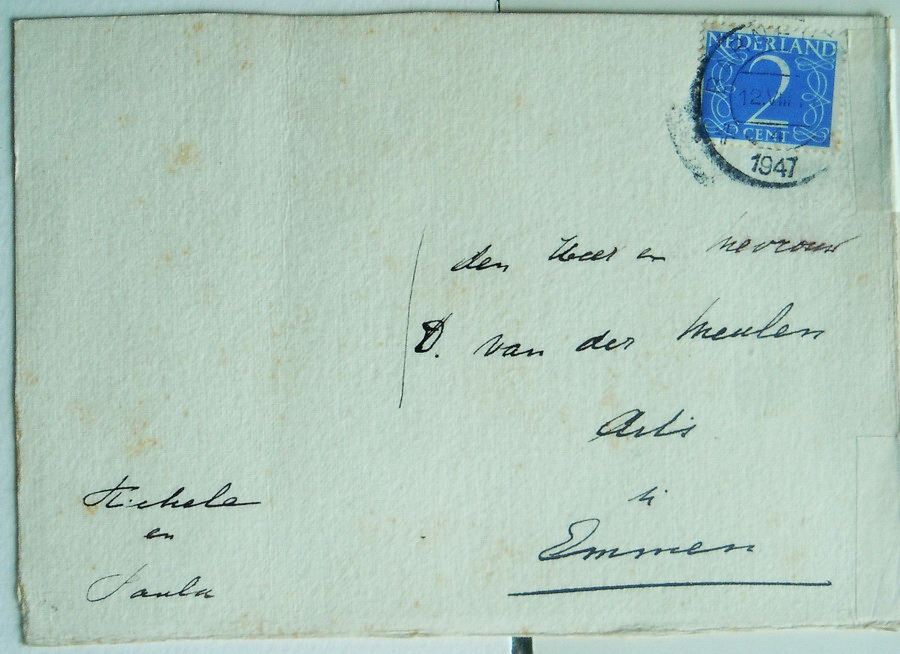 NEDERLAND
2
CENT
12.VIII
1947
den Heer en Mevrouw
D. van der Meulen
Arts
te
Emmen
en
Paula